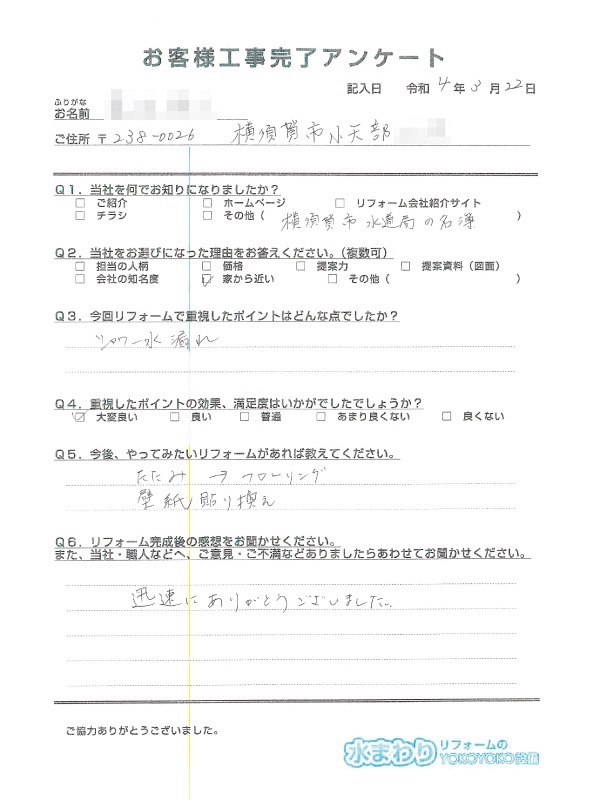 お客様工事完了アンケート
記入日 令和 4 年 3 月 22 日
ふりがな
お名前
ご住所 〒 238-0026 横須賀市小矢部
Q1. 当社を何でお知りになりましたか?
□ ご紹介 □ ホームページ □ リフォーム会社紹介サイト
□ チラシ □ その他( 横須賀市水道局の名簿 )
Q2. 当社をお選びになった理由をお答えください。(複数可)
□ 担当の人柄 □ 価格 □ 提案力 □ 提案資料(図面)
□ 会社の知名度 ☑ 家から近い □ その他( )
Q3. 今回リフォームで重視したポイントはどんな点でしたか?
シャワー水漏れ
Q4. 重視したポイントの効果、満足度はいかがでしたでしょうか?
☑ 大変良い □ 良い □ 普通 □ あまり良くない □ 良くない
Q5. 今後、やってみたいリフォームがあれば教えてください。
たたみ → フローリング
壁紙貼り換え
Q6. リフォーム完成後の感想をお聞かせください。
また、当社・職人などへ、ご意見・ご不満などありましたらあわせてお聞かせください。
迅速にありがとうございました。
ご協力ありがとうございました。
水まわりリフォームの
YOKOYOKO設備